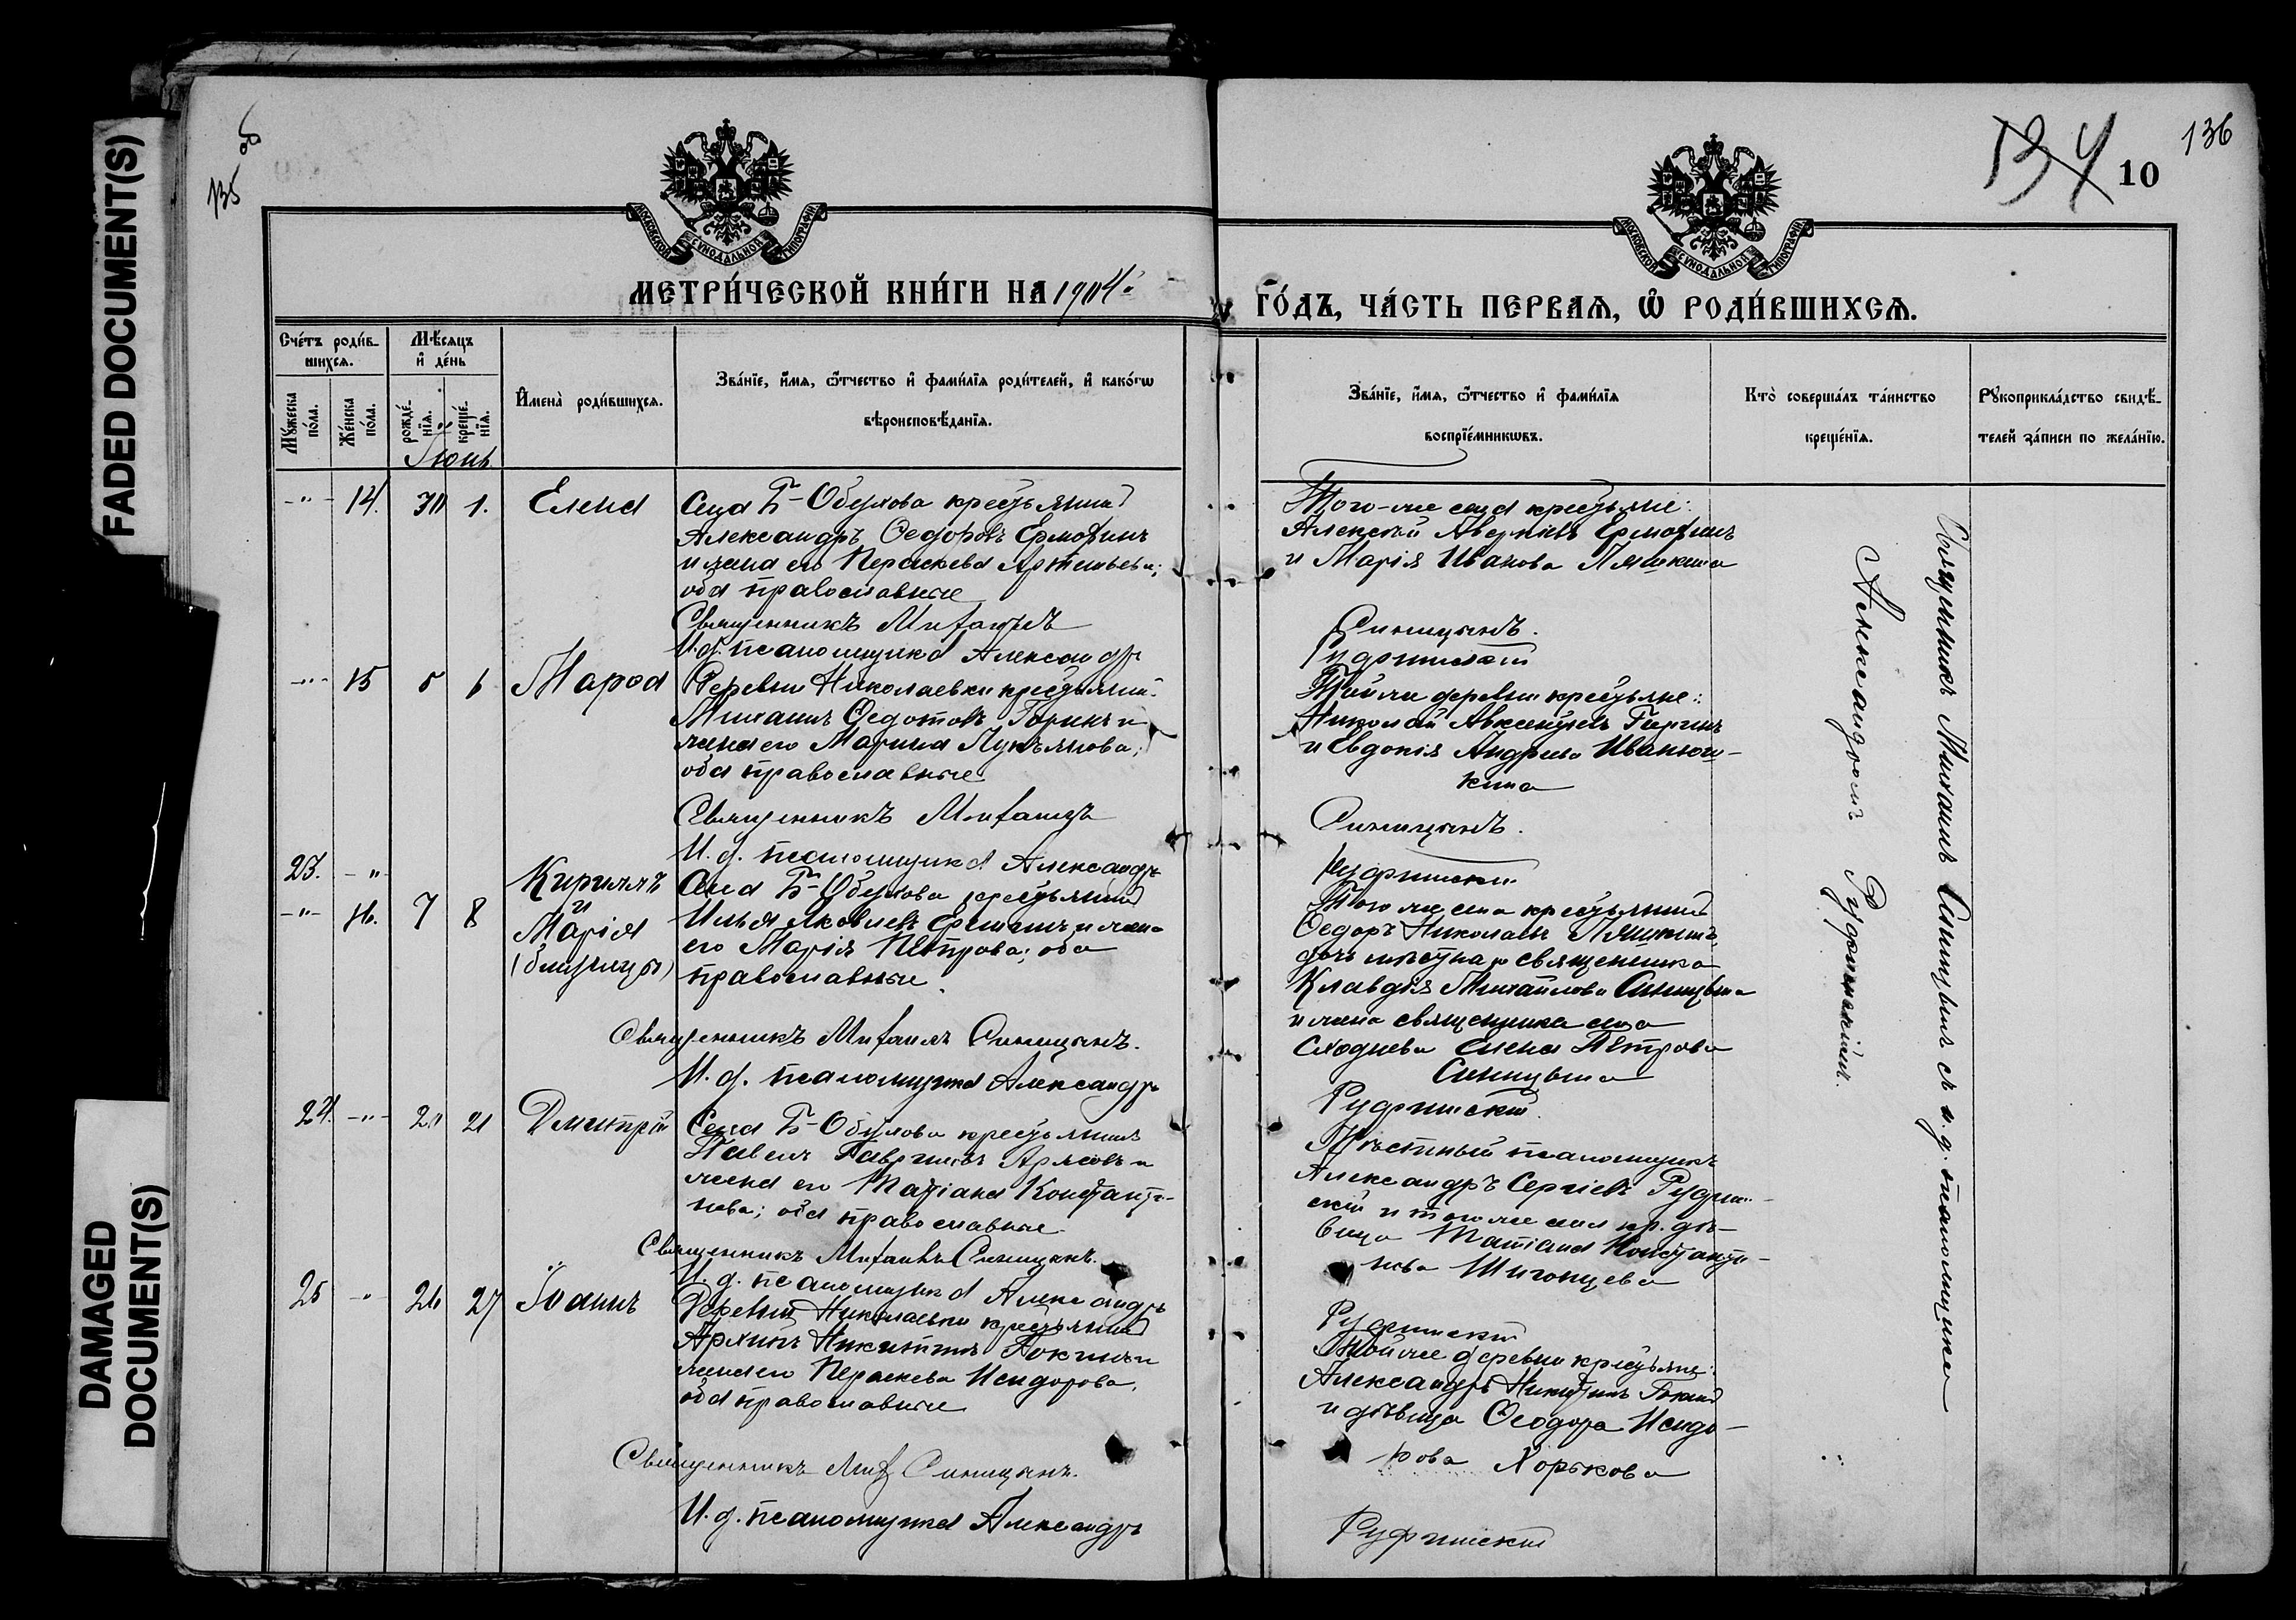 FADED DOCUMENT(S)
DAMAGED
DOCUMENT(S)
135 об
134
10
136
МОСКОВСКОЙ СѴНОДАЛЬНОЙ ТИПОГРАФІИ
МОСКОВСКОЙ СѴНОДАЛЬНОЙ ТИПОГРАФІИ
МЕТРИ́ЧЕСКОЙ КНИ́ГИ НА 1904
ГО́ДЪ, ЧА́СТЬ ПЕРВАЯ, Ѡ РОДИ́ВШИХСЯ.
Сче́тъ роди́в-
шихся.
Мѣ́сяцъ
и де́нь
Мꙋ́жеска
по́ла.
Же́нска
по́ла.
рожде́-
нїя.
креще́-
нїя.
Имена̀ роди́вшихся.
Зва́нїе, и́мя, ѻ́тчество и фами́лїя роди́телей, и како́гѡ
вѣроисповѣ́данїя.
Зва́нїе, и́мя, ѻ́тчество и фами́лїя
воспрїе́мникѡвъ.
Кто̀ соверша́лъ та́инство
креще́нїя.
Рꙋкоприкла́дство свидѣ́-
телей за́писи по жела́нїю.
Іюнь
-"- 14. 30 1. Елена
Села Б-Обухова крестьянинъ
Александръ Ѳедоровъ Ермошинъ
и жена его Параскева Артемьева;
оба православные
Священникъ Михаилъ
И. д. псаломщика Александръ
Того-же села крестьяне:
Алексѣй Аверкіевъ Ермошинъ
и Марія Иванова Пяшкина
Синицынъ.
Рудринскій
-"- 15 5 6 Мароа
Деревни Николаевки крестьянинъ
Михаилъ Ѳедотовъ Горинъ и
жена его Марина Лукъянова;
оба православные
Священникъ Михаилъ
И. д. псаломщика Александръ
Той же деревни крестьяне:
Николай Авксентіевъ Горинъ
и Евдокія Андреева Иванюш-
кина
Синицынъ.
Рудринскій
23. -"-
-"- 16. 7 8
Кириллъ
и
Марія
(близнецы)
Села Б-Обухова крестьянинъ
Илья Яковлевъ Ерминъ и жена
его Марія Петрова; оба
православные.
Священникъ Михаилъ Синицынъ.
И. д. псаломщика Александръ
Того же села крестьянинъ
Ѳедоръ Николаевъ Пяшкинъ,
дочь мѣстнаго священника
Клавдія Михайлова Синицына
и жена священника села
Сходнева Елена Петрова
Синицына
Рудринскій.
24. -"- 20 21 Димитрій
Села Б-Обухова крестьянинъ
Павелъ Гавриловъ и
жена его Татіана Константи-
нова; оба православные
Священникъ Михаилъ Синицынъ.
И. д. псаломщика Александръ
Мѣстный псаломщикъ
Александръ Сергіевъ Рудрин-
скій и того же села кр. дѣ-
вица Татіана Константи-
нова Шигонцева
Рудринскій
25 -"- 26 27 Іоаннъ
Деревни Николаевки крестьянинъ
Архипъ Никитинъ и
жена его Параскева Исидорова,
оба православные
Священникъ Мих Синицынъ.
И. д. псаломщика Александръ
Той же деревни крестьяне:
Александръ Никитинъ
и дѣвица Ѳеодора Исидо-
рова Хорькова
Рудринскій
Священникъ Михаилъ Синицынъ съ и. д. псаломщика
Александромъ Рудринскимъ.